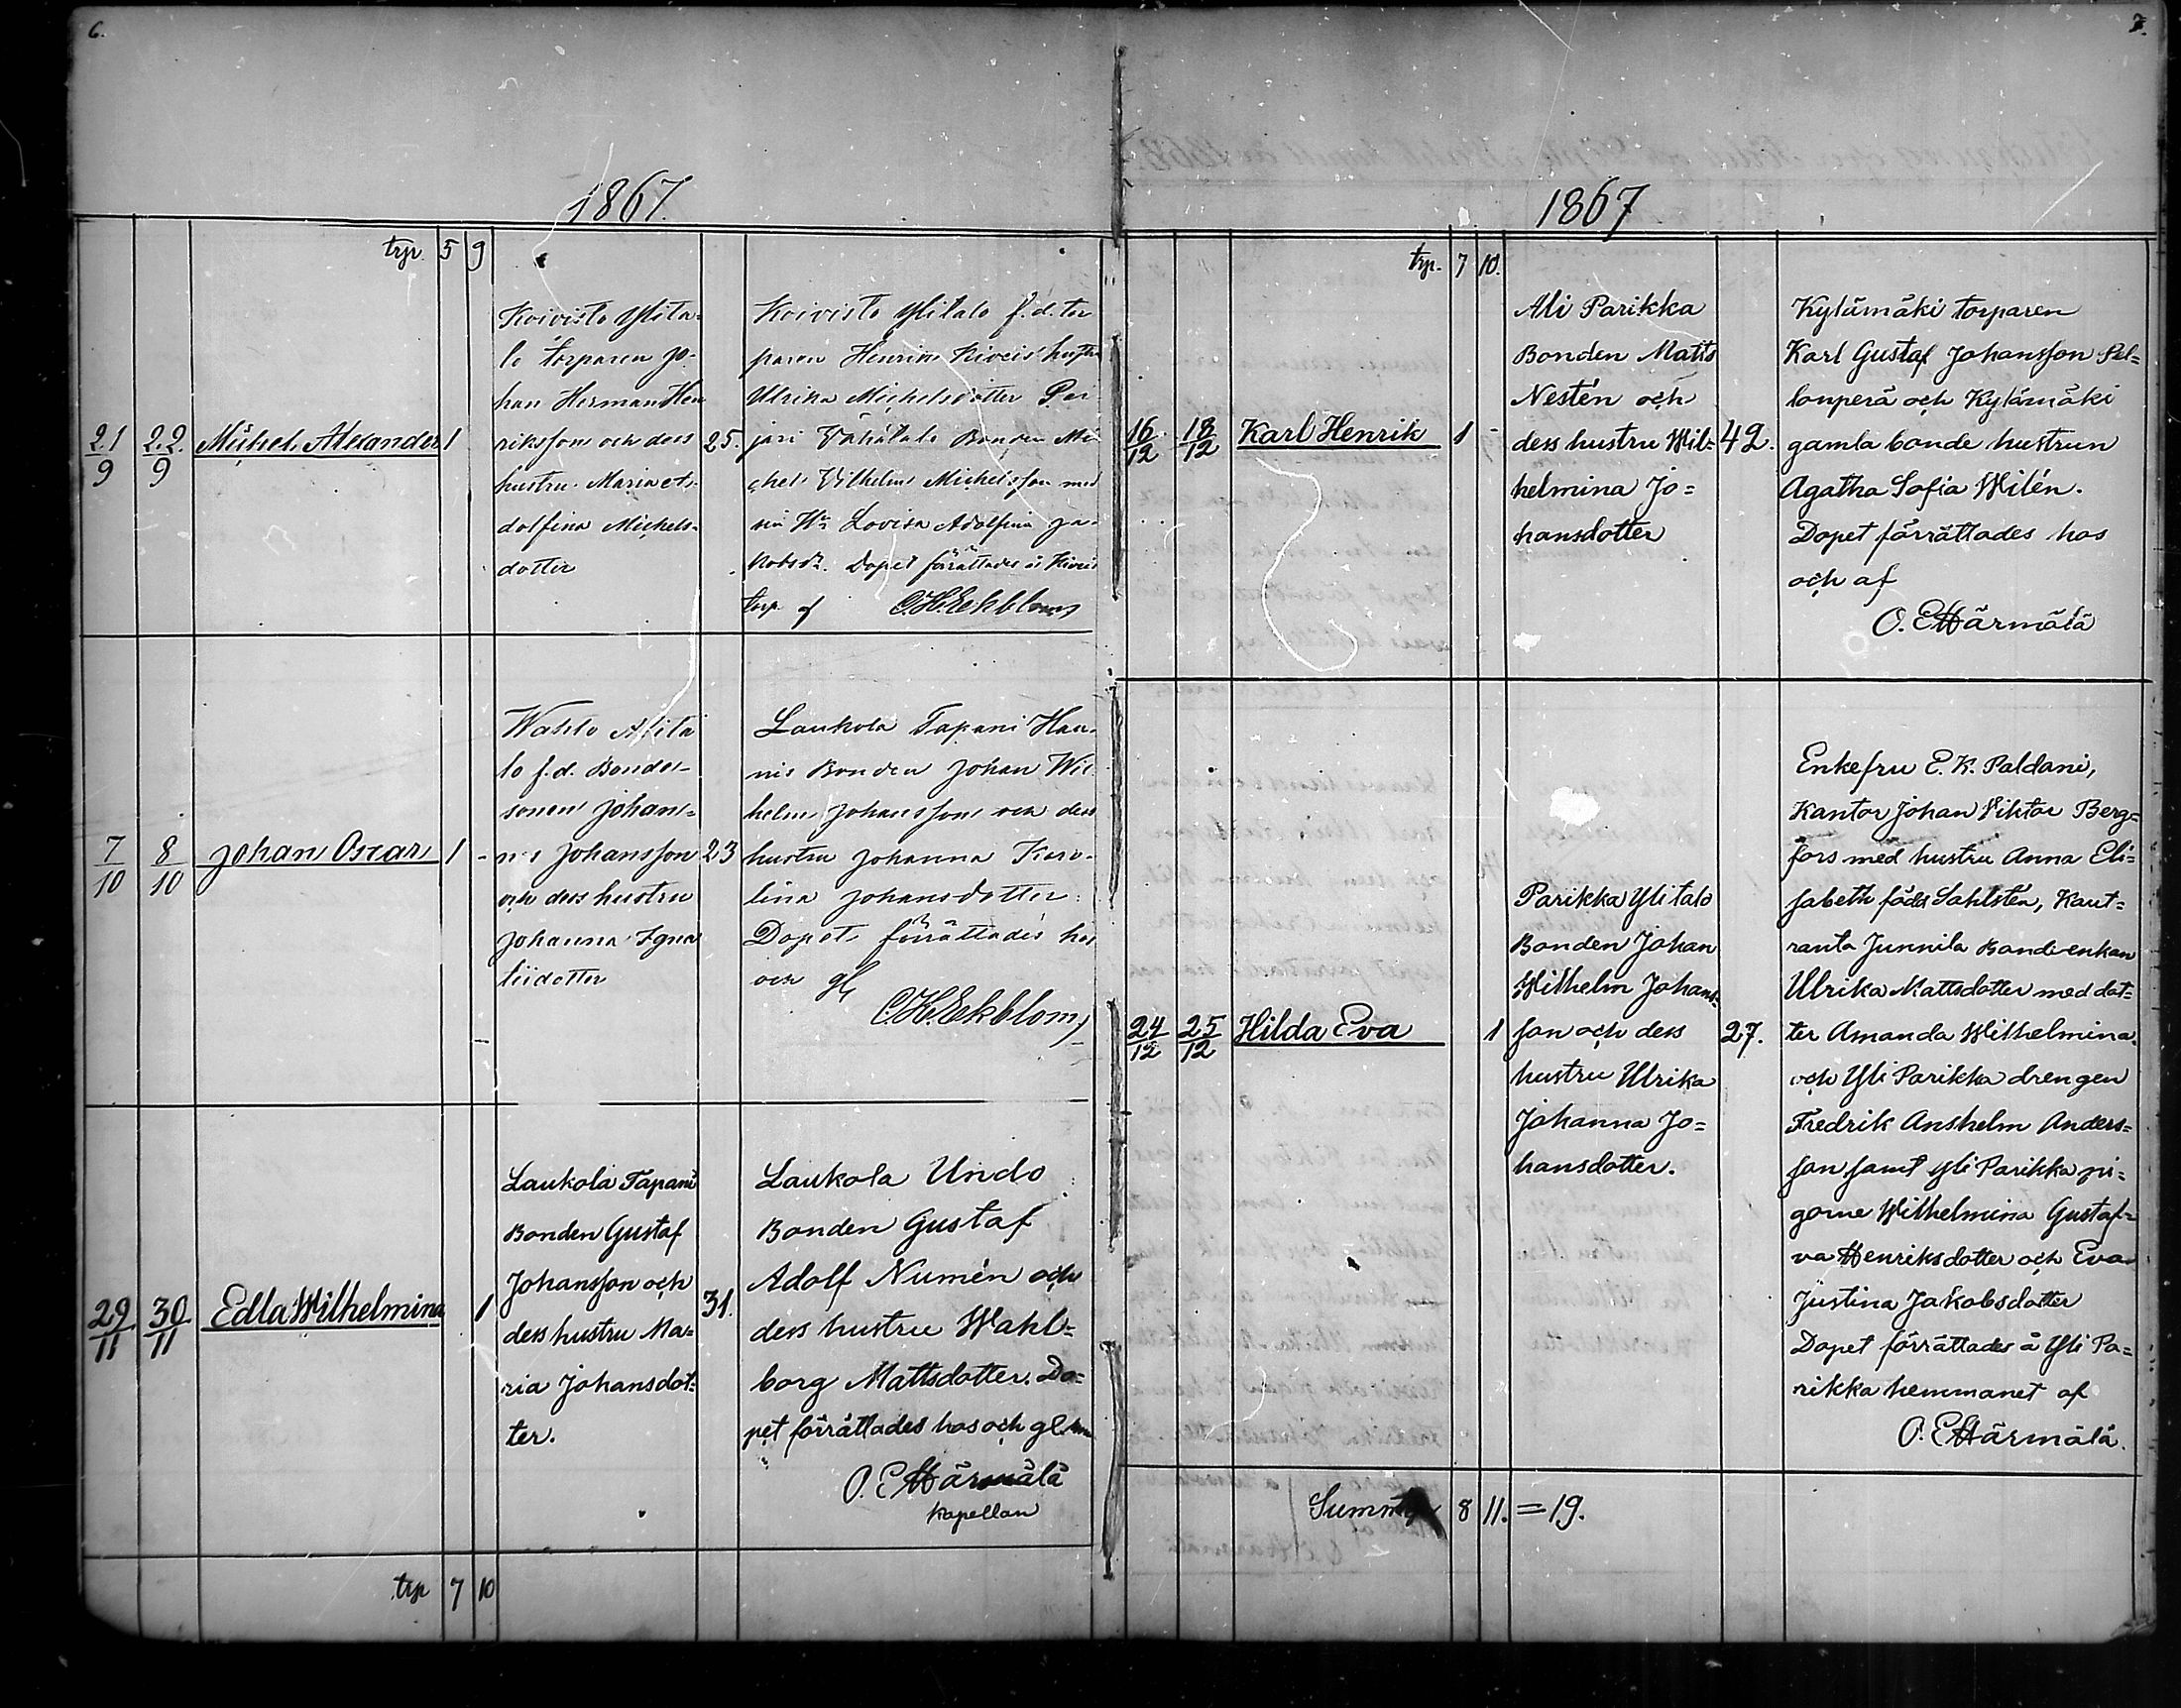 6.
1867.
trp. 5 9
21/9 22/9 Michel Alexander 1 25.
Koivisto Ylita-
lo torparen Jo-
han Herman Hen
riksson och dess
hustru Maria A-
dolfina Michels-
dotter
Koivisto Ylitalo f.d. tor
paren Henrik hustru
Ulrika Michelsdotter Par
jari Vähätalo Bonden Mi
chel Vilhelm Michelsson med
sin Hu Lovisa Adolfina Ja-
kobsdr. Dopet förrättades å
trp. af C.H. Ekblom
7/10 8/10 Johan Oscar 1 - 23
Wahlo Alita
lo f.d. Bonde-
sonen Johan-
nes Johansson
och dess hustru
Johanna Igna
tiidotter
Laukola Tapani Han-
nis Bonden Johan Wil
helm Johansson och dess
hustru Johanna Karo-
lina Johansdotter.
Dopet förrättades hos
och af
C.H. Ekblom
29/11 30/11 Edla Wilhelmina 1 31.
Laukola Tapani
Bonden Gustaf
Johansson och
dess hustru Ma=
ria Johansdot=
ter.
Laukola Undo
Bonden Gustaf
Adolf Numén och
dess hustru Wahl=
borg Mattsdotter. Do=
pet förrättades hos och
O. E Härmälä
Kapellan
trp 7 10
7.
1867
trp. 7 10.
16/12 18/12 Karl Henrik 1 - 42.
Ali Parikka
Bonden Matts
Nestén och
dess hustru Wil=
helmina Jo=
hansdotter
Kylämäki torparen
Karl Gustaf Johansson Pel=
lonperä och Kylämäki
gamla bonde hustrun
Agatha Sofia Wilén.
Dopet förrättades hos
och af
O. E Härmälä
24/12 25/12 Hilda Eva 1 27.
Parikka Ylitalo
Bonden Johan
Wilhelm Johans=
son och dess
hustru Ulrika
Johanna Jo=
hansdotter.
Enkefru E. K. Paldani,
Kantor Johan Viktor Berg=
fors med hustru Anna Eli=
sabeth född Sahlstén, Kaut=
ranta Junnila Bondeenkan
Ulrika Mattsdotter med dot=
ter Amanda Wilhelmina.
och Yli Parikka drengen
Fredrik Anshelm Anders=
son samt Yli Parikka pi=
gorne Wilhelmina Gustaf=
va Henriksdotter och Eva
Justina Jakobsdotter
Dopet förrättades å Yli Pa=
rikka hemmanet af
O. E Härmälä.
Summa 8 11. = 19.